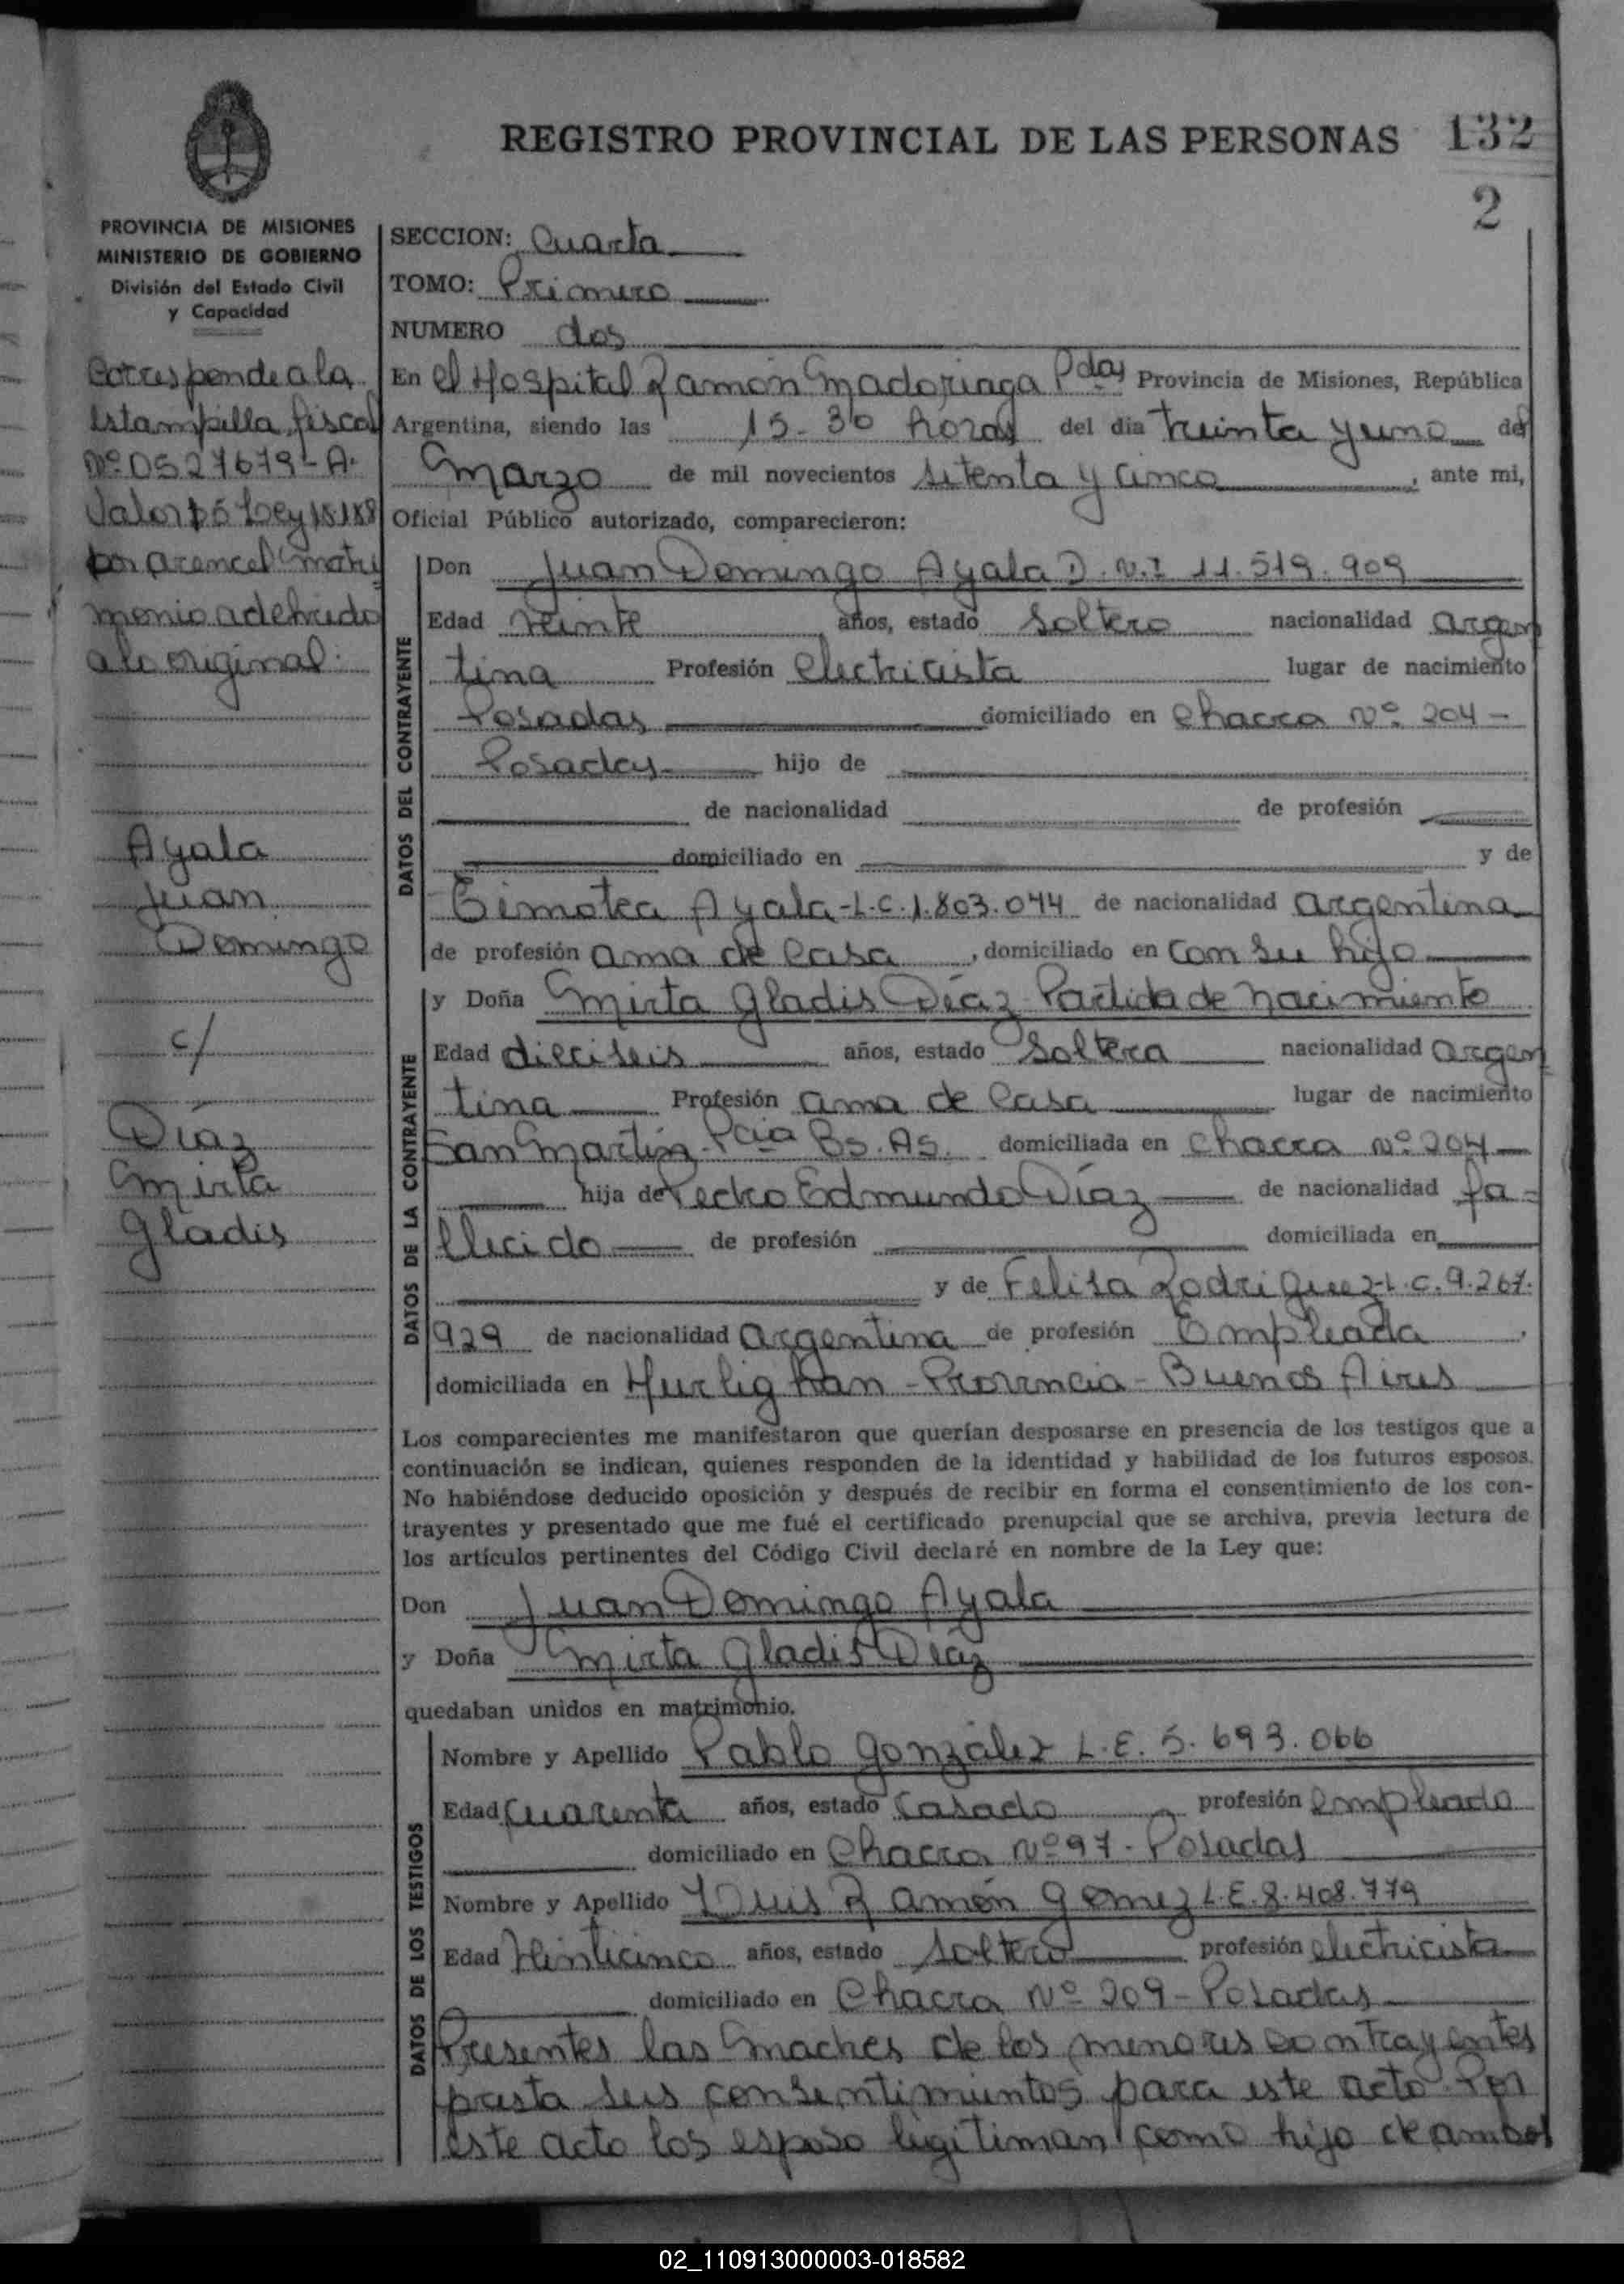 REGISTRO PROVINCIAL DE LAS PERSONAS 132
2
PROVINCIA DE MISIONES
MINISTERIO DE GOBIERNO
División del Estado Civil
y Capacidad
Corresponde a la
Estampilla fiscal
Nº 0527679-A.
Valor $6 Ley 18.188
por arencel matri
monio adehrido
a lo original.
Ayala
Juan
Domingo
c/
Díaz
Mirta
Gladis
SECCION: Cuarta
TOMO: Primero
NUMERO dos
En el Hospital Ramón Madoriaga Pdas Provincia de Misiones, República
Argentina, siendo las 15-30 horas del dia treinta y uno de
Marzo de mil novecientos setenta y cinco, ante mi,
Oficial Público autorizado, comparecieron:
DATOS DEL CONTRAYENTE
Don Juan Domingo Ayala D.N.I 11.519.909
Edad veinte años, estado soltero nacionalidad argen
tina Profesión electricista lugar de nacimiento
Posadas domiciliado en Chacra Nº 204-
Posadas hijo de
de nacionalidad de profesión
domiciliado en y de
Timotea Ayala-L.C.1.803.044 de nacionalidad argentina
de profesión ama de casa, domiciliado en con su hijo
DATOS DE LA CONTRAYENTE
y Doña Mirta Gladis Díaz Partida de nacimiento
Edad dieciseis años, estado soltera nacionalidad argen
tina Profesión ama de casa lugar de nacimiento
San Martín-Pcia Bs.As. domiciliada en Chacra Nº 204
hija de Pedro Edmundo Díaz de nacionalidad fa=
llecido de profesión domiciliada en
y de Felisa Rodriguez-L.C.9.267.
929 de nacionalidad argentina de profesión Empleada,
domiciliada en Hurlighan-Provincia-Buenos Aires
Los comparecientes me manifestaron que querían desposarse en presencia de los testigos que a
continuación se indican, quienes responden de la identidad y habilidad de los futuros esposos.
No habiéndose deducido oposición y después de recibir en forma el consentimiento de los con-
trayentes y presentado que me fué el certificado prenupcial que se archiva, previa lectura de
los artículos pertinentes del Código Civil declaré en nombre de la Ley que:
Don Juan Domingo Ayala
y Doña Mirta Gladis Díaz
quedaban unidos en matrimonio.
DATOS DE LOS TESTIGOS
Nombre y Apellido Pablo González L.E. 5.693.066
Edad Cuarenta años, estado casado profesión empleado
domiciliado en Chacra Nº 97-Posadas
Nombre y Apellido Luis Ramón Gomez L.E.8.408.779
Edad Veinticinco años, estado soltero profesión electricista
domiciliado en Chacra Nº 209-Posadas
Presentes las madres de los menores contrayentes
presta sus consentimientos para este acto. Por
este acto los esposo legitiman como hijo de ambos
02_110913000003-018582